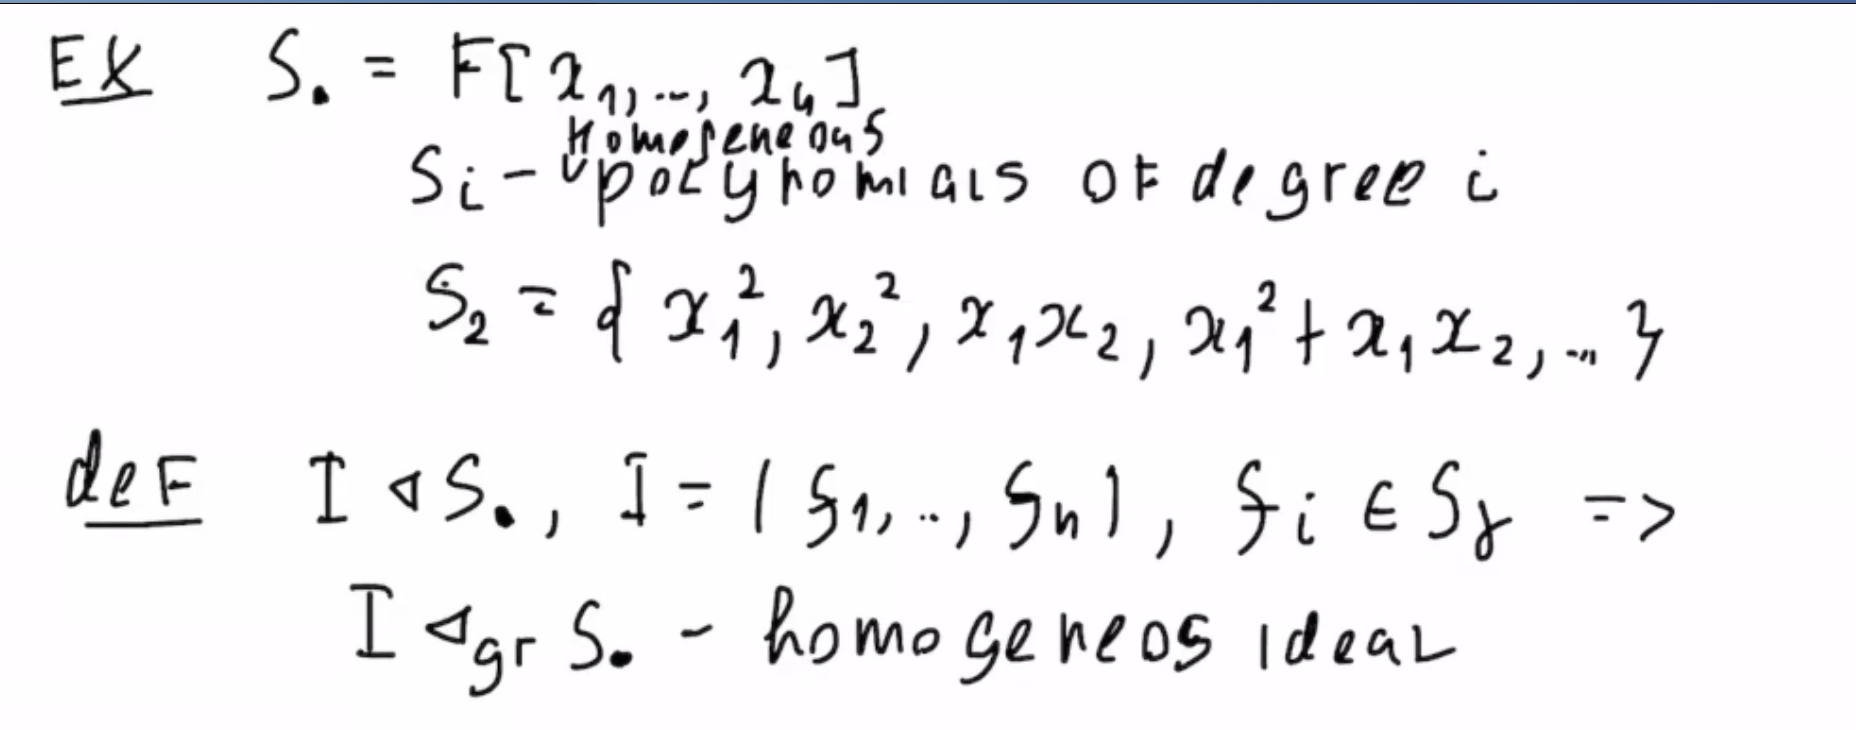 Ex S. = F[x₁, ..., xₙ]
homogeneous
Sᵢ - polynomials of degree i
S₂ = { x₁², x₂², x₁x₂, x₁² + x₁x₂, ... }
def I ⊲ S., I = (f₁, .., fₙ), fᵢ ∈ Sⱼ =>
I ⊲gr S. - homogeneos ideal